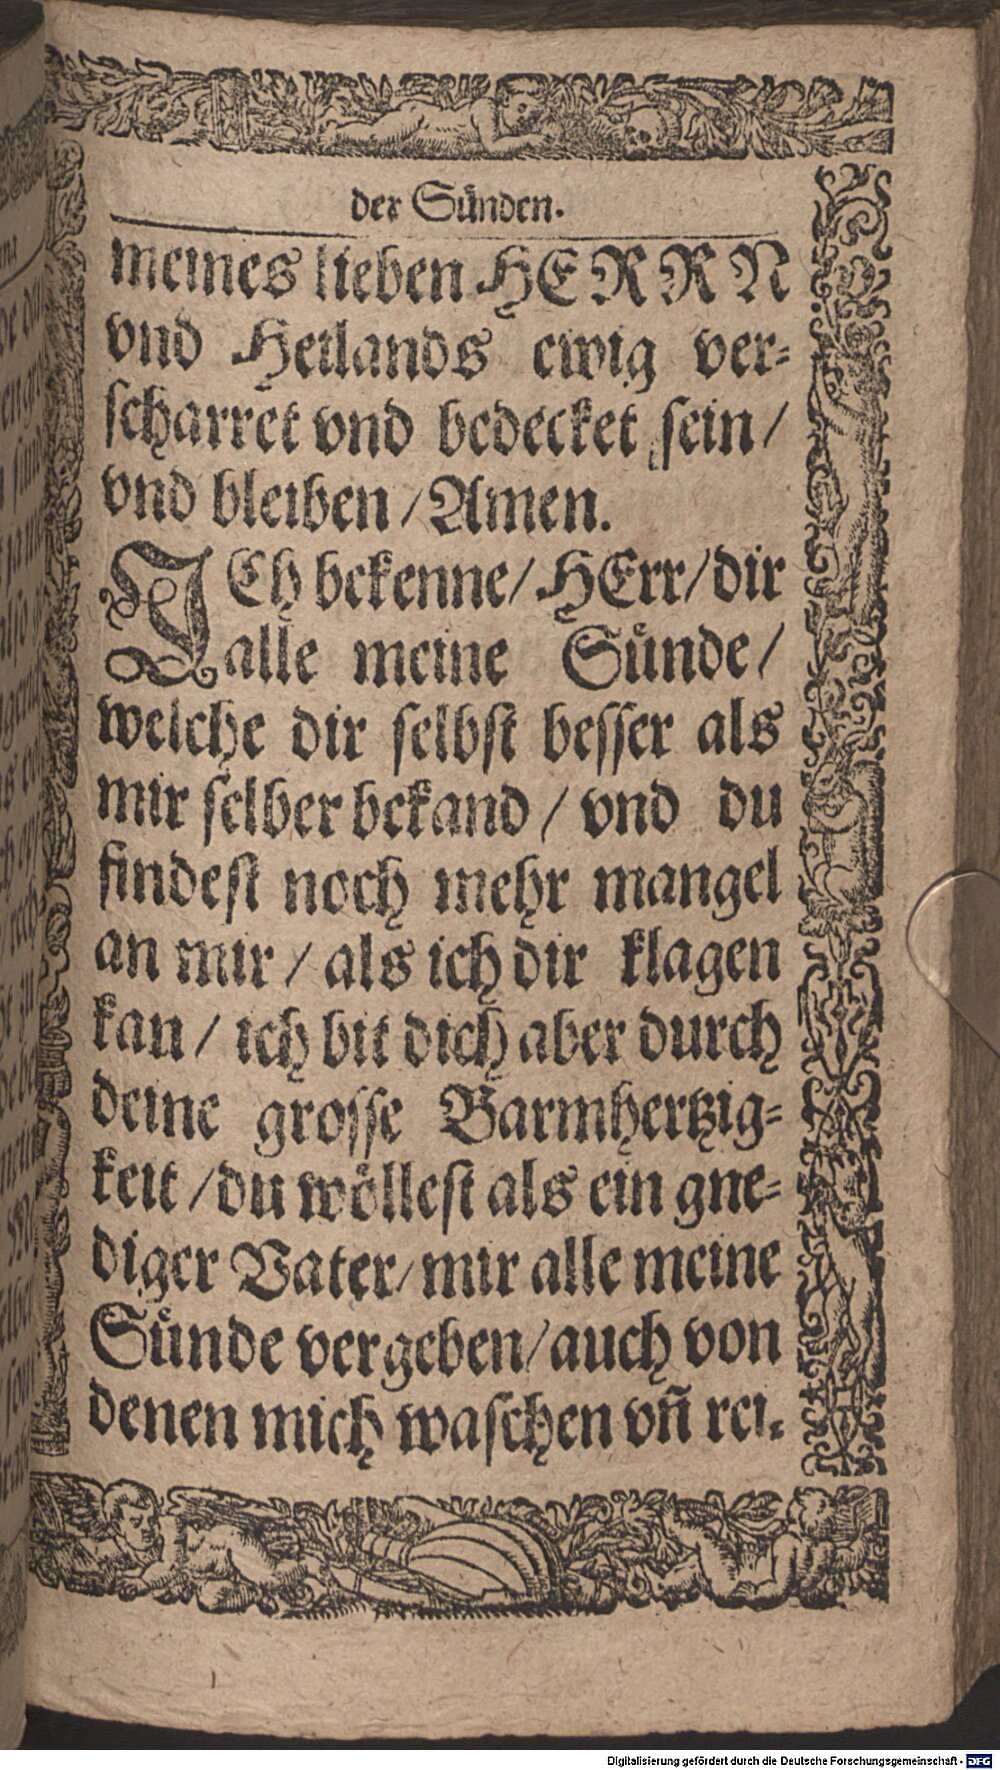 der Suͤnden.
meines lieben HERRN
vnd Heilands ewig ver⸗
scharret vnd bedecket sein/
vnd bleiben/Amen.
ICh bekenne/HErr/dir
alle meine Suͤnde/
welche dir selbst besser als
mir selber bekand/vnd du
findest noch mehr mangel
an mir/als ich dir klagen
kan/ich bit dich aber durch
deine grosse Barmhertzig⸗
keit/du woͤllest als ein gne⸗
diger Vater/mir alle meine
Suͤnde vergeben/auch von
denen mich waschen vñ rei⸗
Digitalisierung gefördert durch die Deutsche Forschungsgemeinschaft - DFG